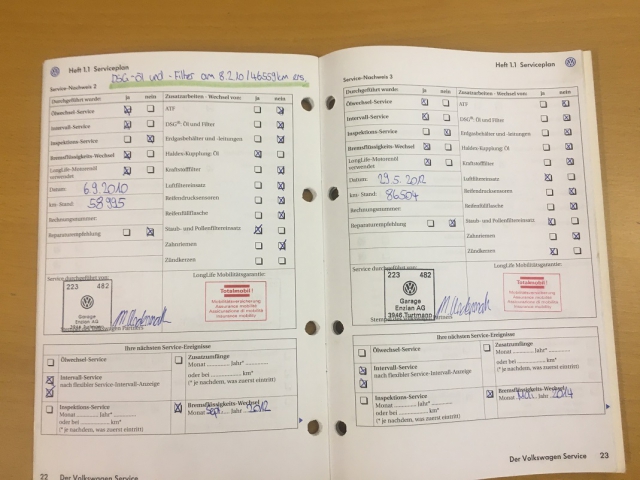 Heft 1.1 Serviceplan
DSG-Öl und -Filter am 8.2.10/46559km ers.
Service-Nachweis 2
Durchgeführt wurde: ja nein
Ölwechsel-Service
Intervall-Service
Inspektions-Service
Bremsflüssigkeits-Wechsel
LongLife-Motorenöl
verwendet
Datum: 6.9.2010
km-Stand: 58995
Rechnungsnummer:
Reparaturempfehlung
Zusatzarbeiten - Wechsel von: ja nein
ATF
DSG®: Öl und Filter
Erdgasbehälter und -leitungen
Haldex-Kupplung: Öl
Kraftstofffilter
Luftfiltereinsatz
Reifendrucksensoren
Reifenfüllflasche
Staub- und Pollenfiltereinsatz
Zahnriemen
Zündkerzen
Service durchgeführt von:
223 482
Garage
Enzian AG
LongLife Mobilitätsgarantie:
Totalmobil!
Mobilitätsversicherung
Assurance mobilité
Assicurazione di mobilità
Insurance mobility
Ihre nächsten Service-Ereignisse
Ölwechsel-Service
Intervall-Service
nach flexibler Service-Intervall-Anzeige
Inspektions-Service
Monat Jahr*
oder bei km*
(* je nachdem, was zuerst eintritt)
Zusatzumfänge
Monat Jahr*
oder bei km*
(* je nachdem, was zuerst eintritt)
Bremsflüssigkeits-Wechsel
Monat Sept. Jahr 2012
22 Der Volkswagen Service
Heft 1.1 Serviceplan
Service-Nachweis 3
Durchgeführt wurde: ja nein
Ölwechsel-Service
Intervall-Service
Inspektions-Service
Bremsflüssigkeits-Wechsel
LongLife-Motorenöl
verwendet
Datum: 29.5.2012
km-Stand: 86504
Rechnungsnummer:
Reparaturempfehlung
Zusatzarbeiten - Wechsel von: ja nein
ATF
DSG®: Öl und Filter
Erdgasbehälter und -leitungen
Haldex-Kupplung: Öl
Kraftstofffilter
Luftfiltereinsatz
Reifendrucksensoren
Reifenfüllflasche
Staub- und Pollenfiltereinsatz
Zahnriemen
Zündkerzen
Service durchgeführt von:
223 482
Garage
Enzian AG
3946 Turtmann
LongLife Mobilitätsgarantie:
Totalmobil!
Mobilitätsversicherung
Assurance mobilité
Assicurazione di mobilità
Insurance mobility
Ihre nächsten Service-Ereignisse
Ölwechsel-Service
Intervall-Service
nach flexibler Service-Intervall-Anzeige
Inspektions-Service
Monat Jahr*
oder bei km*
(* je nachdem, was zuerst eintritt)
Zusatzumfänge
Monat Jahr*
oder bei km*
(* je nachdem, was zuerst eintritt)
Bremsflüssigkeits-Wechsel
Monat Jahr 2014
Der Volkswagen Service 23